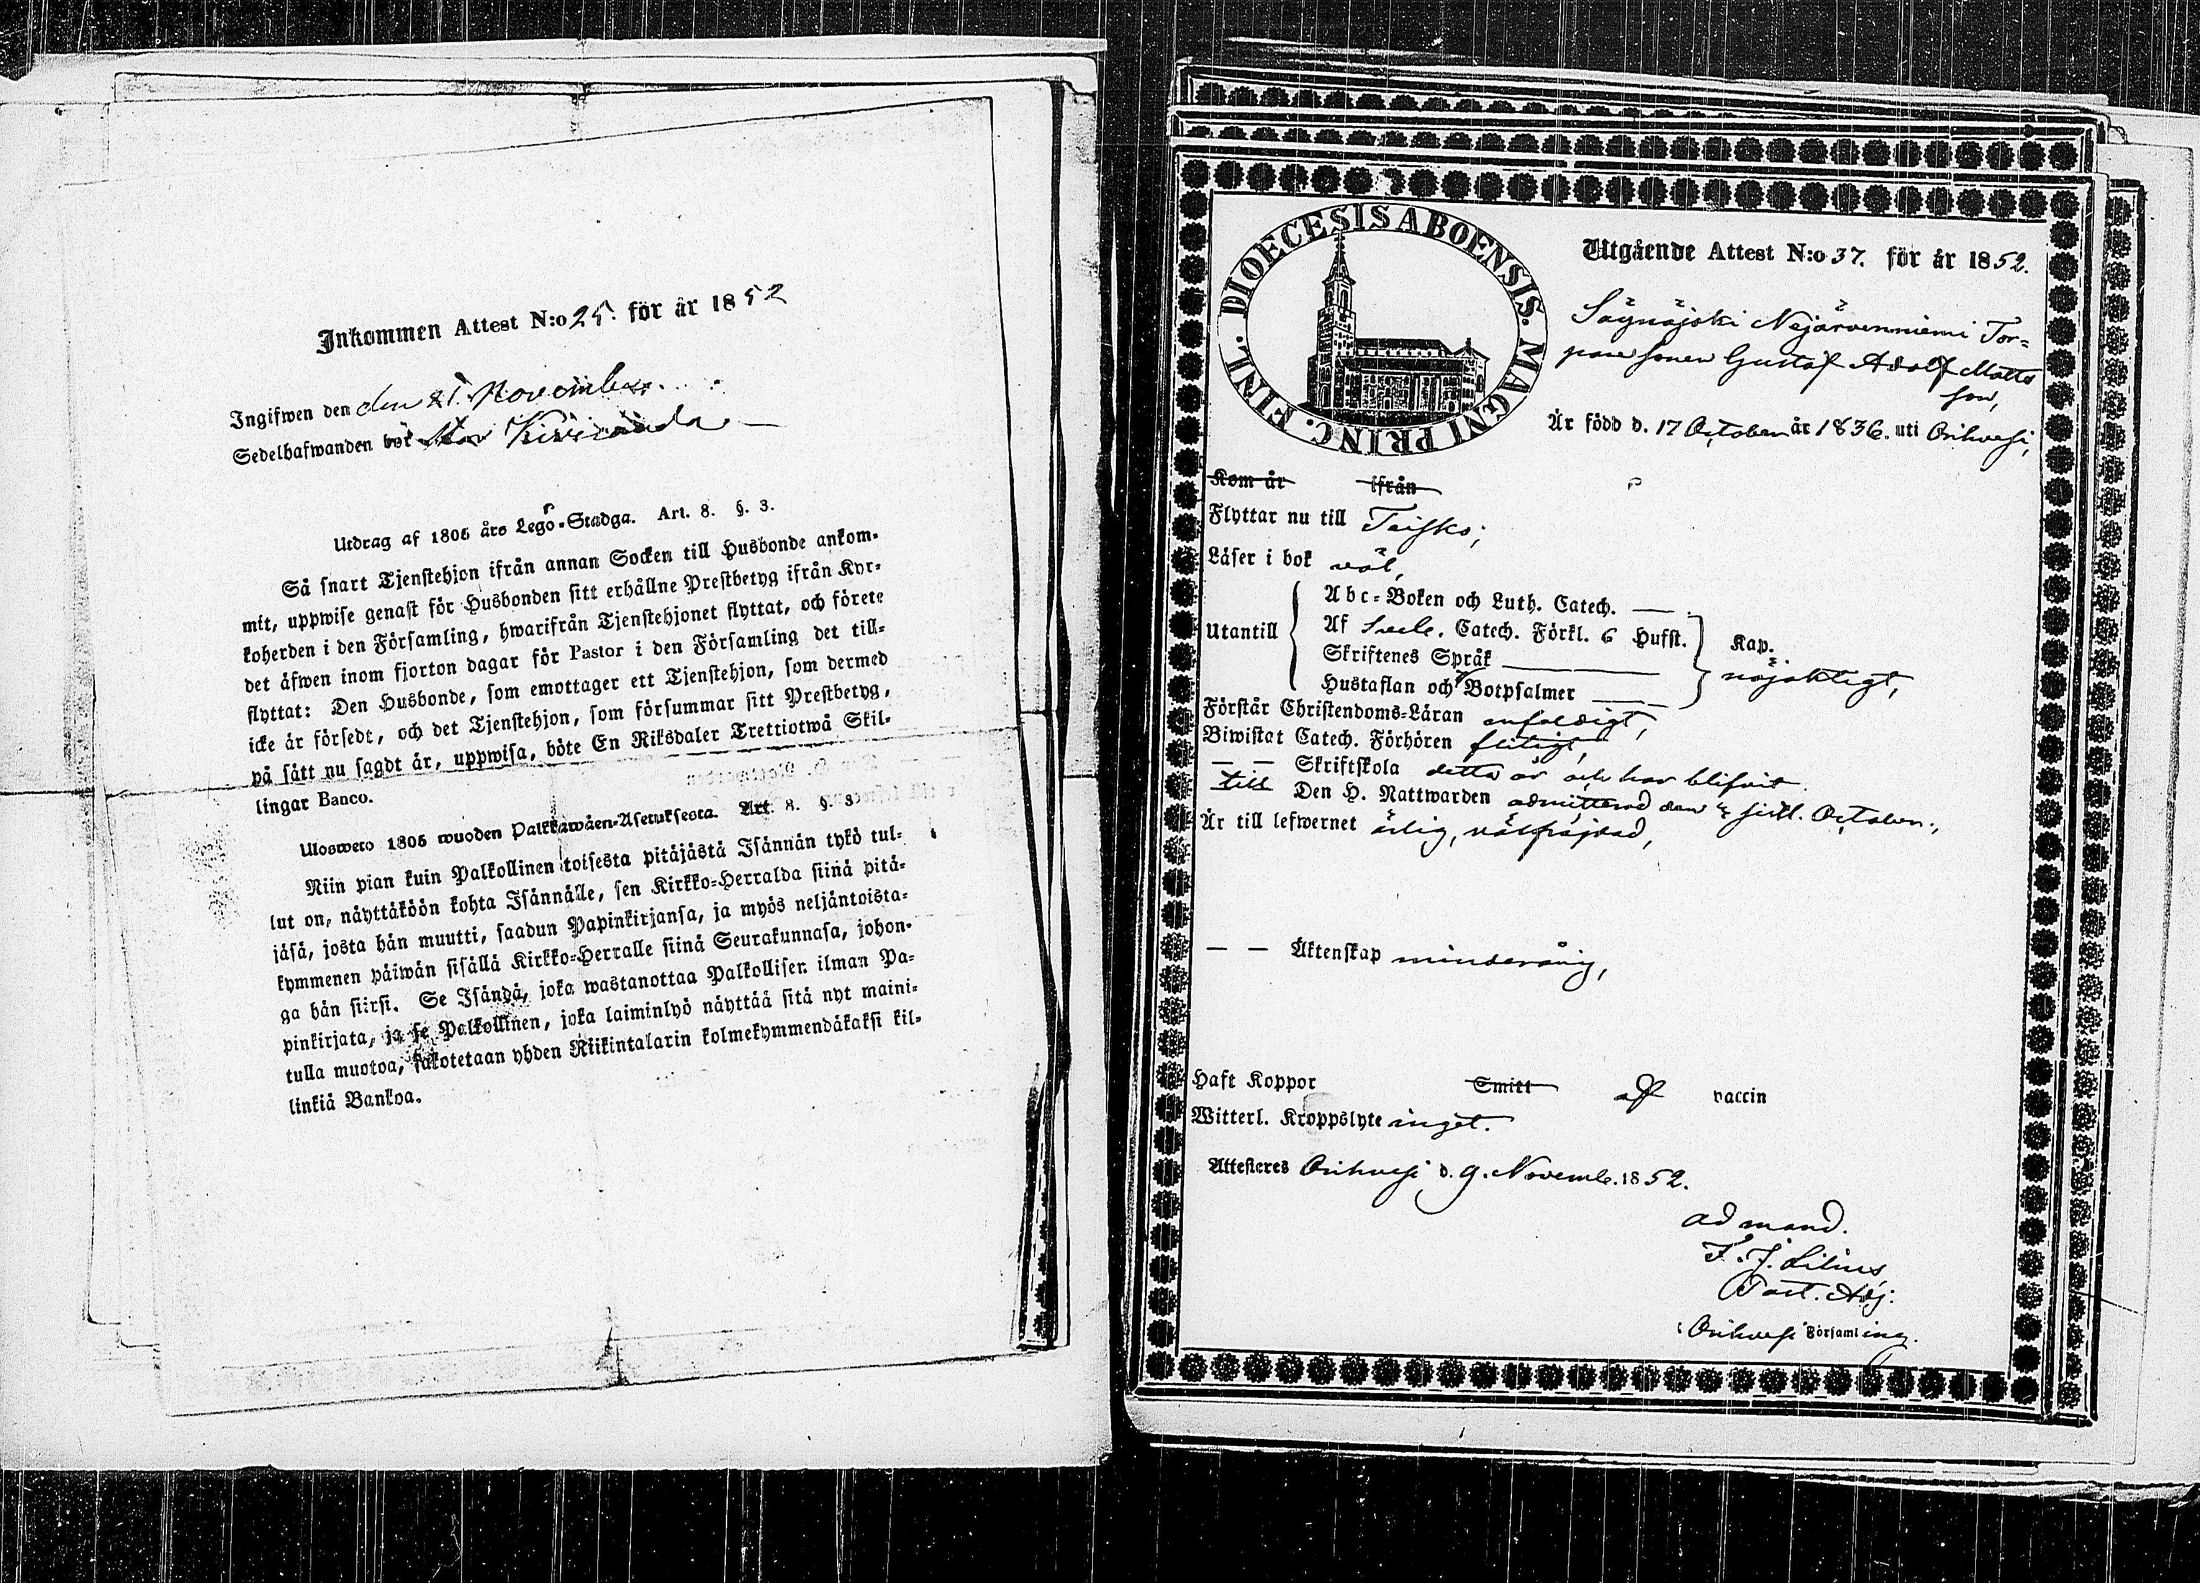 Inkommen Attest N:o 25. för år 1852
Ingifwen den den 21 November.
Sedelhafwanden bor
Utdrag af 1805 års Lego-Stadga. Art. 8. §. 3.
Så snart Tjenstehjon ifrån annan Socken till Husbonde ankom-
mit, uppwise genast för Husbonden sitt erhållne Prestbetyg ifrån Kyr-
koherden i den Församling, hwarifrån Tjenstehjonet flyttat, och förete
det äfwen inom fjorton dagar för Pastor i den Församling det till-
flyttat: Den Husbonde, som emottager ett Tjenstehjon, som dermed
icke är försedt, och det Tjenstehjon, som försummar sitt Prestbetyg,
på sätt nu sagdt är, uppwisa, böte En Riksdaler Trettiotwå Skil-
lingar Banco.
Ulosweto 1805 wuoden Palkkawäen-Asetuksesta. Art. 8. §. 3.
Niin pian kuin Palkollinen toisesta pitäjästä Isännän tykö tul-
lut on, näyttäköön kohta Isännälle, sen Kirkko-Herralda siinä pitä-
jäsä, josta hän muutti, saadun Papinkirjansa, ja myös neljäntoista-
kymmenen päiwän sisällä Kirkko-Herralle siinä Seurakunnasa, johon-
ga hän siirsi. Se Isändä, joka wastanottaa Palkollisen ilman Pa-
pinkirjata, ja se Palkollinen, joka laiminlyö näyttää sitä nyt maini-
tulla muotoa, sakotetaan yhden Riikintalarin kolmekymmendäkaksi kil-
linkiä Bankoa.
DIOECESIS ABOENSIS. MAGNI PRINC. FINL.
Utgående Attest N:o 37. för år 1852.
Nejärvenniemi Tor=
pare sonen Gustaf Adolf Matts
son,
Är född d. 17 October år 1836. uti Orihvesi,
Kom år ifrån
Flyttar nu till Teisko;
Läser i bok väl,
Utantill
Abc-Boken och Luth. Catech. —
Af Sveb. Catech. Förkl. 6 Hufst.
Skriftenes Språk —
Hustaflan och 7 Botpsalmer —
Kap.
nöjaktigt,
Förstår Christendoms-Läran enfaldigt,
Biwistat Catech. Förhören flitigt,
— — Skriftskola detta år och har blifvit
till Den H. Nattwarden admitterad den sistl. October;
Är till lefwernet ärlig, välfräjdad,
— — Äktenskap minderårig,
Haft Koppor Smitt af vaccin
Witterl. Kroppslyte inget.
Attesteras Orihvesi d. 9. Novemb. 1852.
ad mand.
F. J. Lilius
Past. Adj:
i Orihvesi Församling.